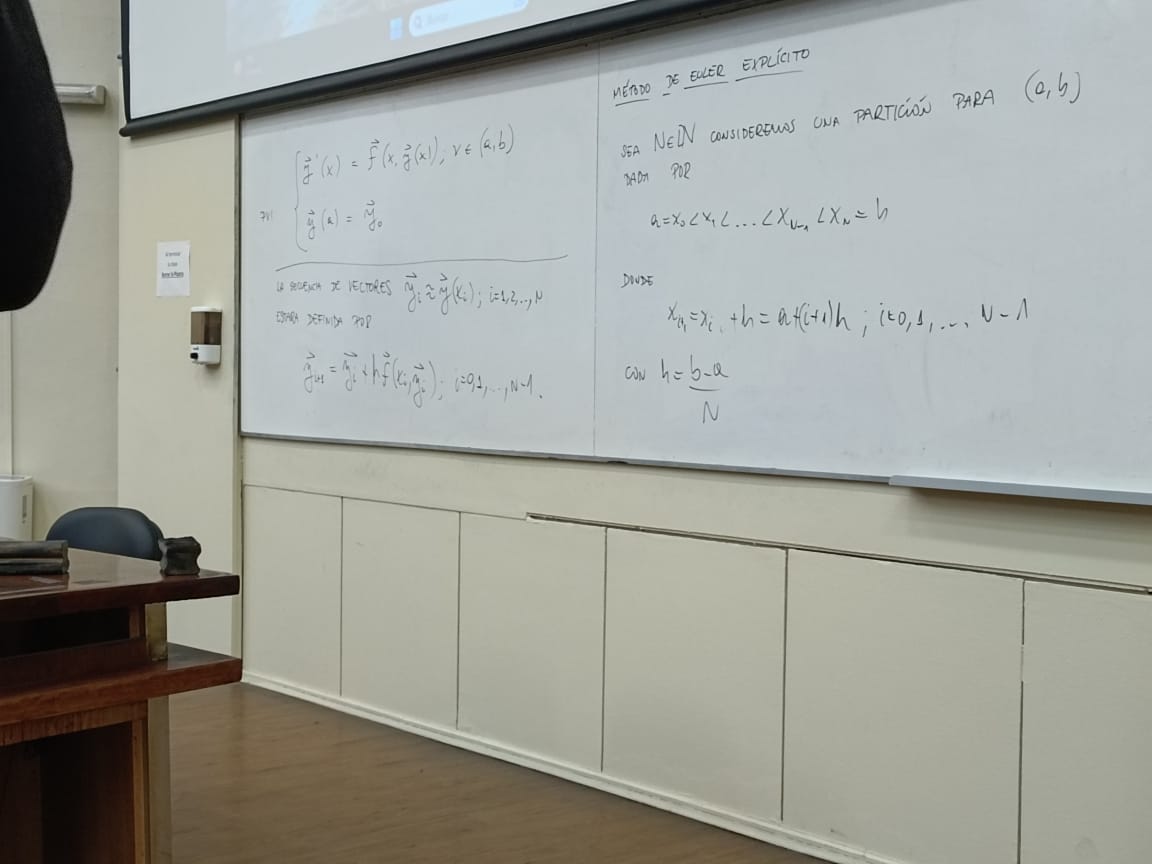 PVI
y⃗'(x) = f⃗(x, y⃗(x)); x ∈ (a,b)
y⃗(a) = y⃗₀
LA SECUENCIA DE VECTORES y⃗ᵢ ≈ y⃗(xᵢ); i=1,2,..., N
ESTARÁ DEFINIDA POR
y⃗ᵢ₊₁ = y⃗ᵢ + hf⃗(xᵢ, y⃗ᵢ); i=0,1,...,N-1.
MÉTODO DE EULER EXPLÍCITO
SEA N∈ℕ CONSIDEREMOS UNA PARTICIÓN PARA (a,b)
DADA POR
a=x₀<x₁<...<x_{N-1}<x_N=b
DONDE
xᵢ₊₁=xᵢ+h=a+(i+1)h; i=0,1,..., N-1
CON h=b-a
N